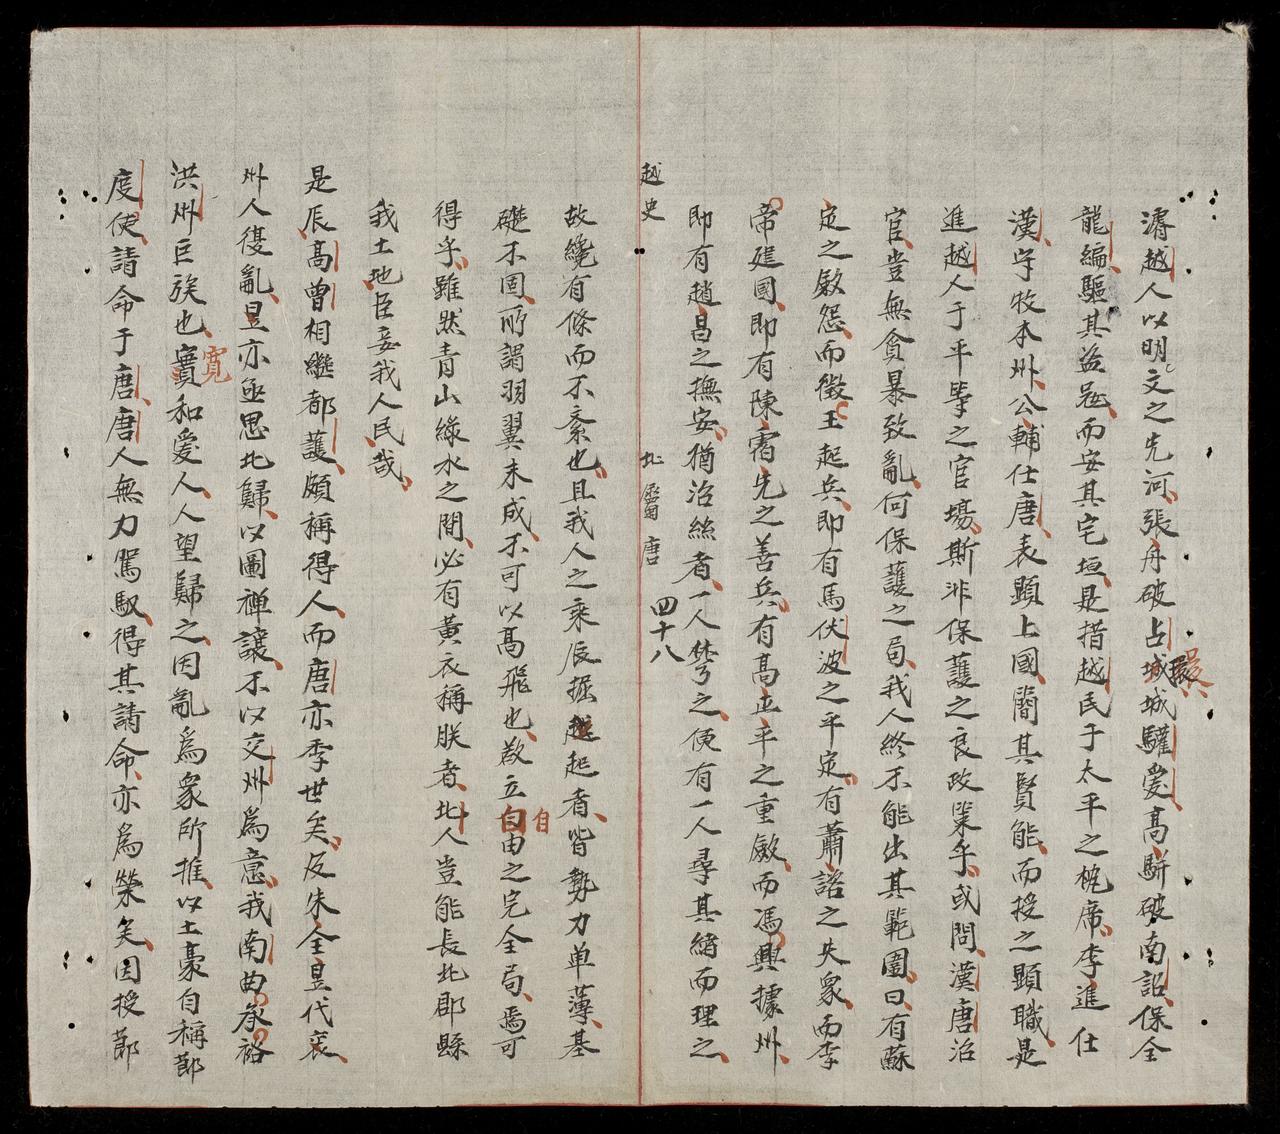 濬越人以明文之先河張舟破占城城驩愛高駢破南詔保全
龍編驅其盜寇而安其宅垣是措越民于太平之枕席李進仕
漢守牧本州公輔仕唐表顕上國簡其賢能而授之顕職是
進越人于平等之官場斯非保護之良政策乎或問漢唐治
官豈無貪暴致亂何保護之局我人終不能出其範圍曰有蘇
定之斂怨而徵王起兵即有馬伏波之平定有蕭諮之失衆而李
帝建國即有陳霸先之善兵有高正平之重斂而馮興據州
即有趙昌之撫安猶治絲者一人棼之便有一人尋其緒而理之
越史
北屬唐
四十八
故纔有條而不紊也且我人之乘辰掘越起者皆勢力单薄基
礎不固所謂羽翼未成不可以高飛也敢立自由之完全局焉可
得乎雖然青山綠水之間必有黃衣稱朕者北人豈能長北郡縣
我土地臣妾我人民哉
是辰高曾相繼都護頗稱得人而唐亦季世矣及朱全昱代袞
州人復亂昱亦亟思北歸以圖禅讓不以交州為意我南曲承裕
洪州巨族也寬和愛人人望歸之因亂爲衆所推以土豪自稱節
度使請命于唐唐人無力駕馭得其請命亦爲榮矣因授節